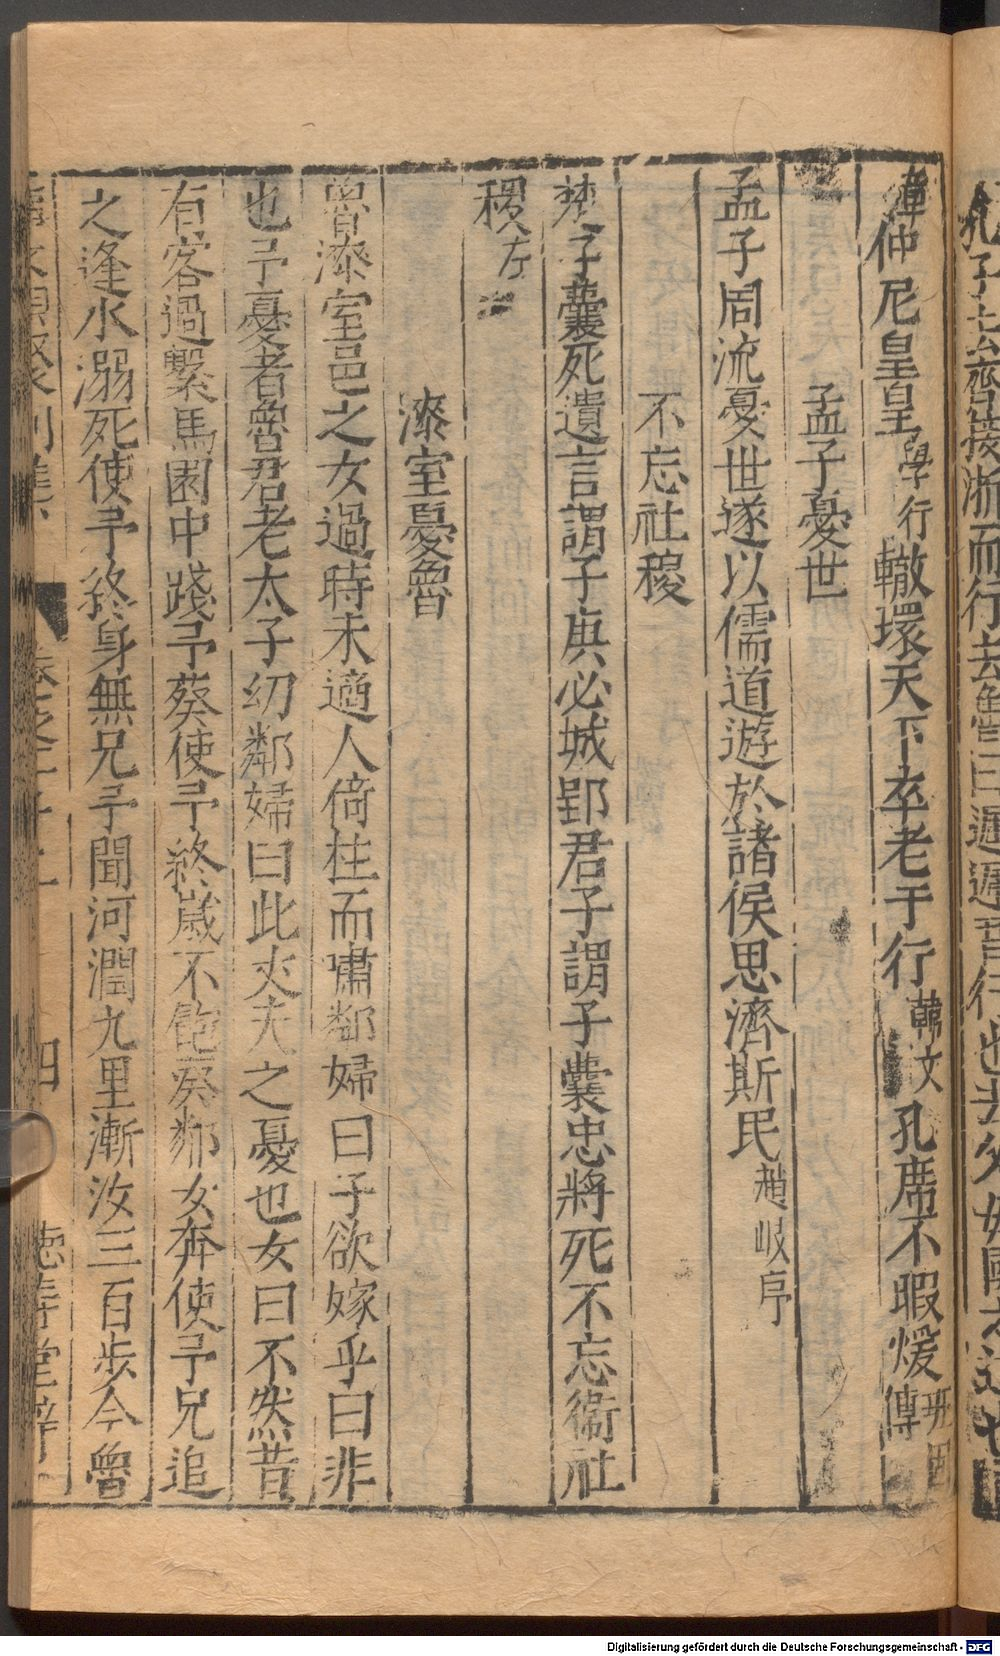 孔子去齊接淅而行去魯曰遲遲吾行也去父母國之道也
仲尼皇皇學行轍環天下卒老于行韓文孔席不暇煖班固傳
孟子憂世
孟子周流憂世遂以儒道遊於諸侯思濟斯民趙岐序
不忘社稷
楚子囊死遺言謂子庚必城郢君子謂子囊忠將死不忘衛社
稷左
漆室憂魯
魯漆室邑之女過時未適人倚柱而嘯鄰婦曰子欲嫁乎曰非
也予憂者魯君老太子幼鄰婦曰此丈夫之憂也女曰不然昔
有客過繫馬園中踐予葵使予終歲不飽葵鄰女奔使予兄追
之逢水溺死使予終身無兄予聞河潤九里漸汝三百步今魯
四
Digitalisierung gefördert durch die Deutsche Forschungsgemeinschaft - DFG